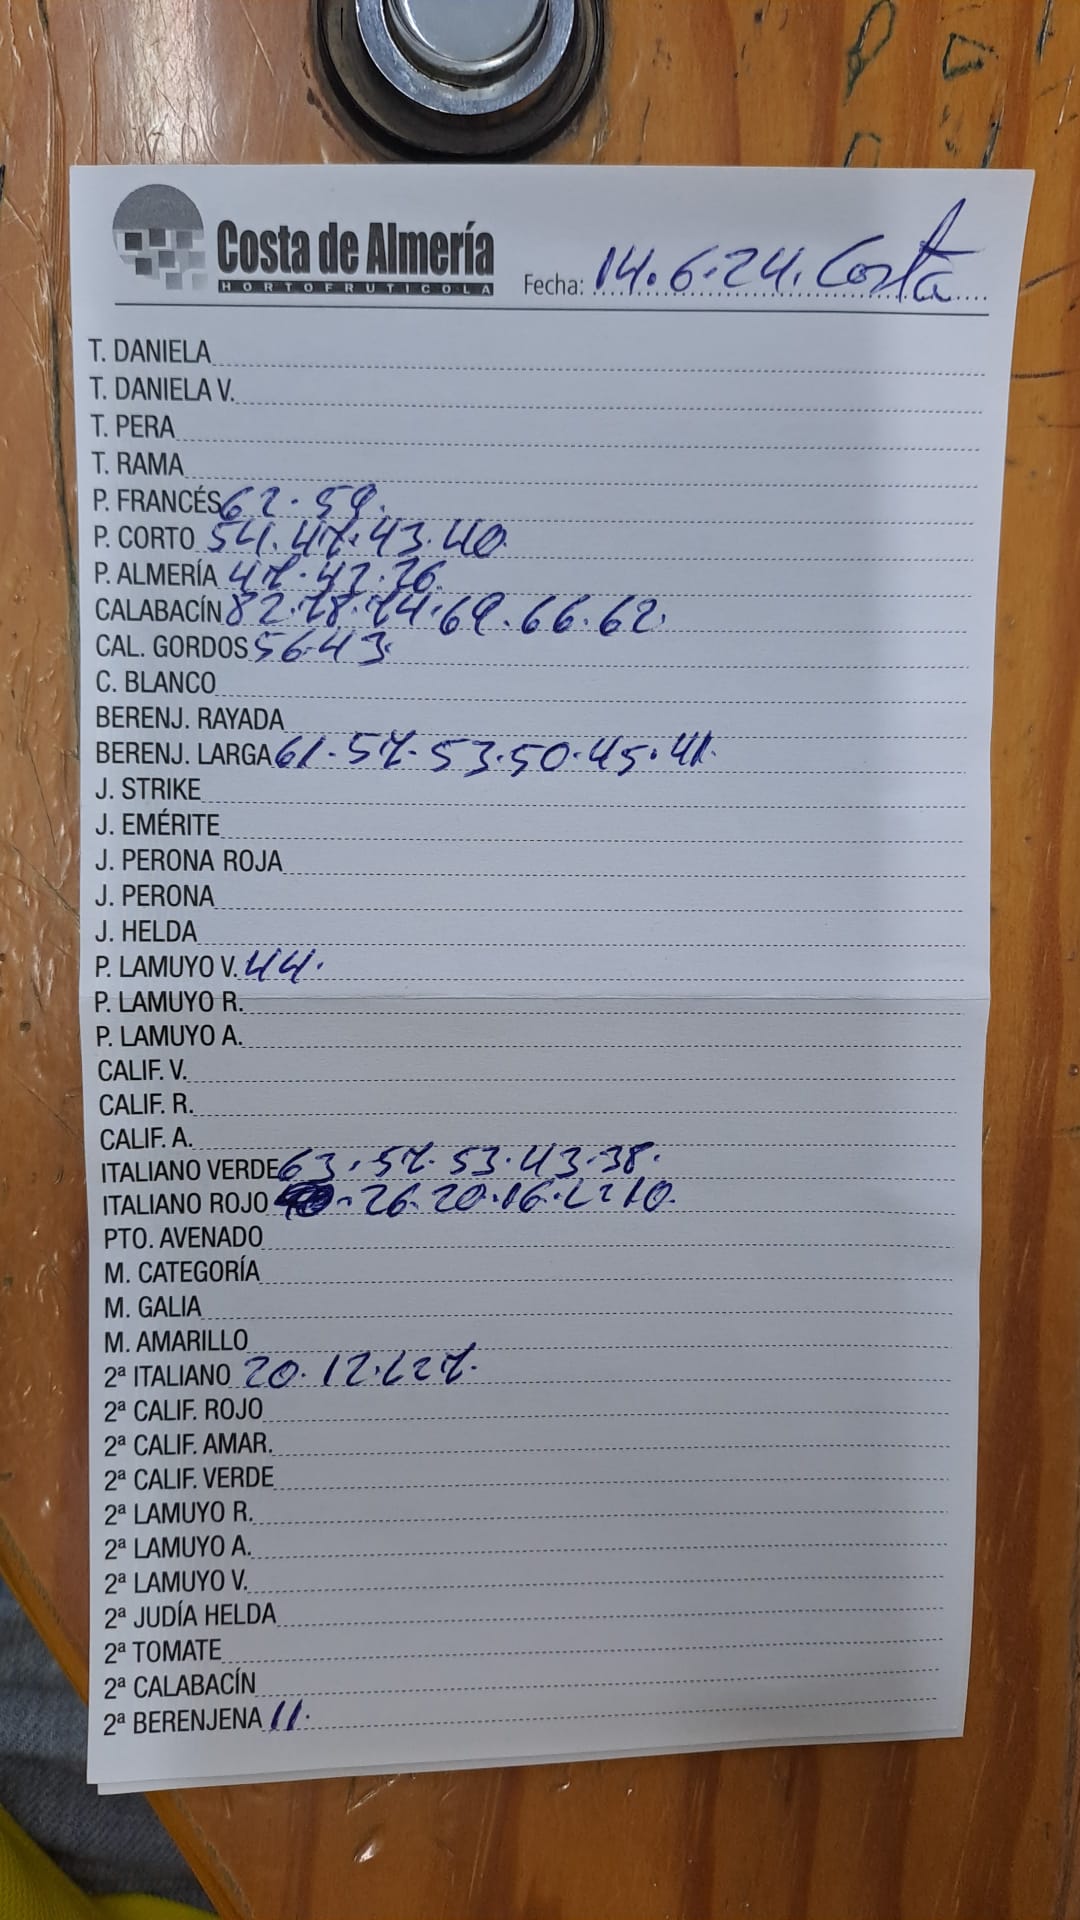 Costa de Almería
HORTOFRUTICOLA
Fecha: 14.6.24. Costa
T. DANIELA
T. DANIELA V.
T. PERA
T. RAMA
P. FRANCÉS 62. 59.
P. CORTO 54. 47. 43. 40.
P. ALMERÍA 47. 42. 36.
CALABACÍN 82. 78. 74. 69. 66. 62.
CAL. GORDOS 56.43.
C. BLANCO
BERENJ. RAYADA
BERENJ. LARGA 61. 57. 53. 50. 45. 41.
J. STRIKE
J. EMÉRITE
J. PERONA ROJA
J. PERONA
J. HELDA
P. LAMUYO V. 44.
P. LAMUYO R.
P. LAMUYO A.
CALIF. V.
CALIF. R.
CALIF. A.
ITALIANO VERDE 63. 57. 53. 43. 38.
ITALIANO ROJO 26. 20. 16. 10.
PTO. AVENADO
M. CATEGORÍA
M. GALIA
M. AMARILLO
2ª ITALIANO 20. 12.
2ª CALIF. ROJO
2ª CALIF. AMAR.
2ª CALIF. VERDE
2ª LAMUYO R.
2ª LAMUYO A.
2ª LAMUYO V.
2ª JUDÍA HELDA
2ª TOMATE
2ª CALABACÍN
2ª BERENJENA 11.